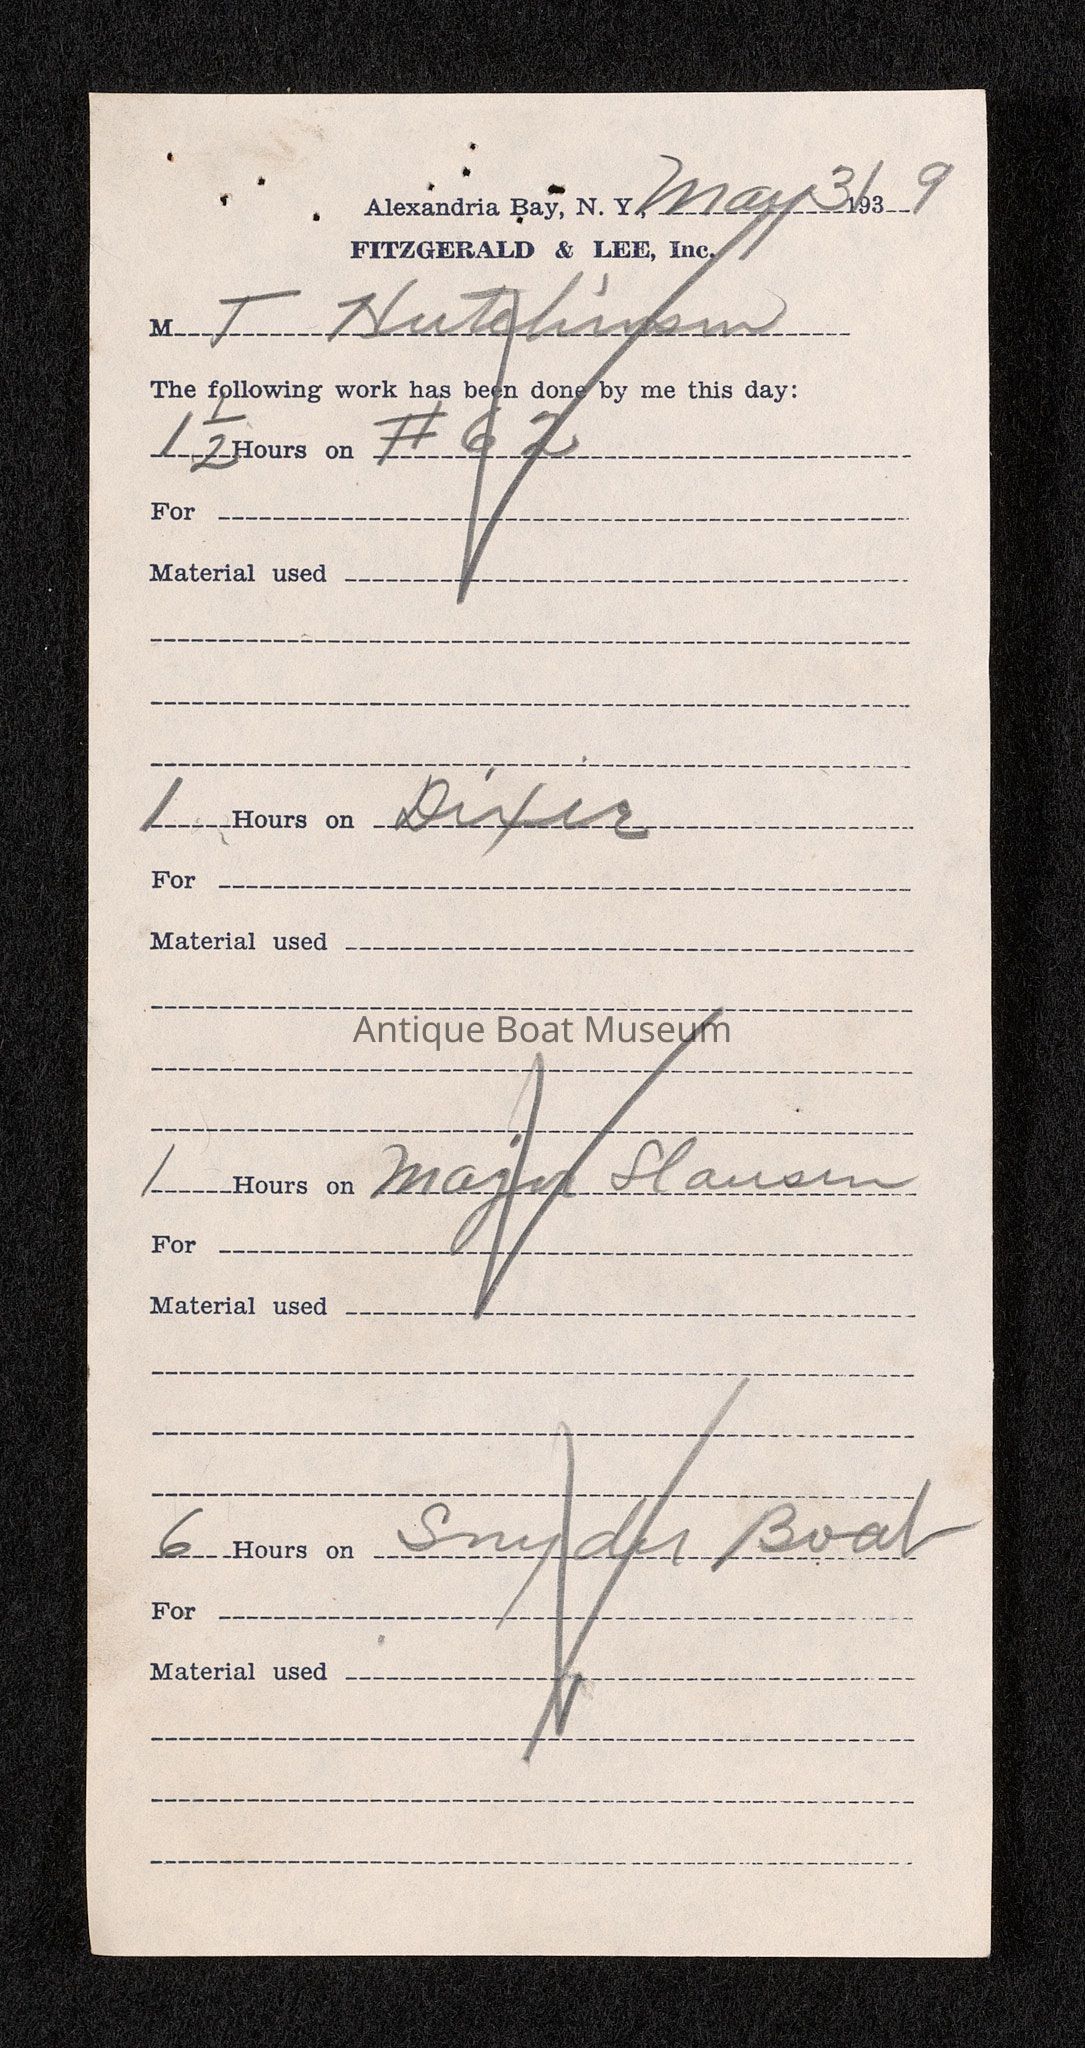 Alexandria Bay, N. Y., May 31 1939
FITZGERALD & LEE, Inc.
M T Hutchinson
The following work has been done by me this day:
1 1/2 Hours on #62
For
Material used
1 Hours on Dixie
For
Material used
Antique Boat Museum
1 Hours on Major Slauson
For
Material used
6 Hours on Snyder Boat
For
Material used